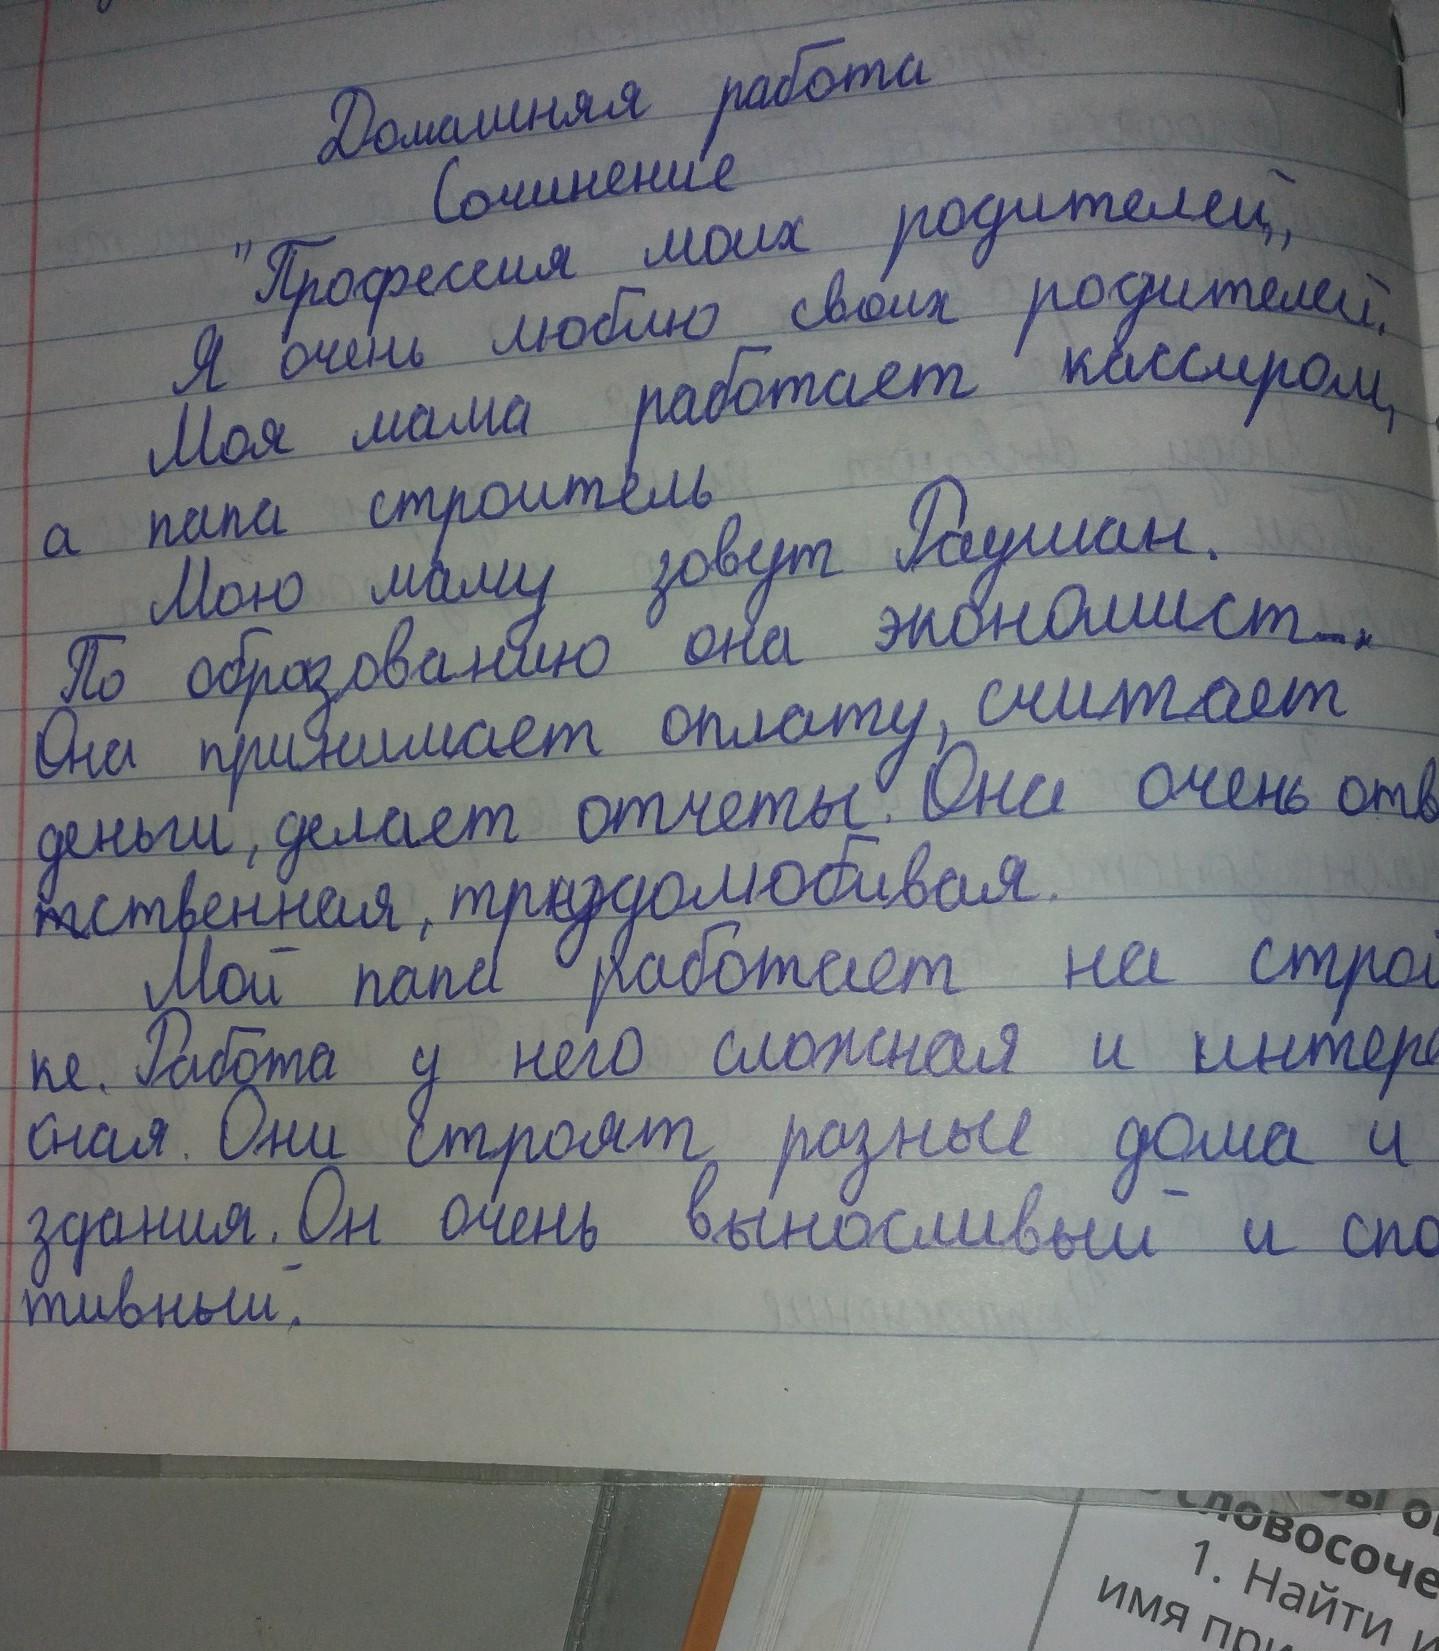 Домашняя работа
Сочинение
"Профессия моих родителей,,
Я очень люблю своих родителей.
Моя мама работает кассиром,
а папа строитель
Мою маму зовут Раушан.
По образованию она экономист...
Она принимает оплату, считает
деньги, делает отчеты. Она очень отв
тственная, трудомюбивая.
Мой папа работает на строй
ке. Работа у него сложная и интере
сная. Они строят разные дома и
здания. Он очень выносливый и спо
тивный.
словосоче
1. Найти и
имя при